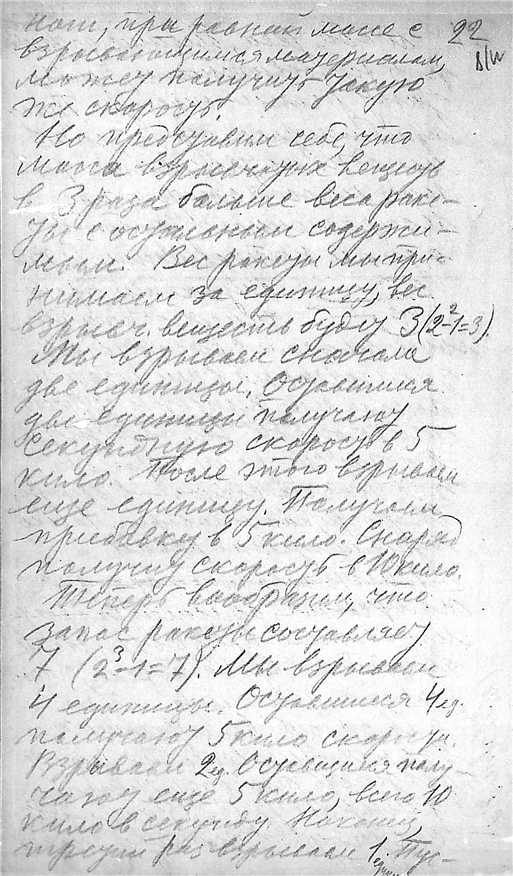 ном, при равной массе с 22
взрывающимся материалом,
может получить такую
же скорость.
Но представим себе, что
масса взрывчатых веществ
в 3 раза больше веса раке-
ты с остальным содержи-
мым. Вес ракеты мы при-
нимаем за единицу, вес
взрывч. веществ будет 3 (2²-1=3).
Мы взрываем сначала
две единицы. Оставшиеся
две единицы получают
секундную скорость в 5
кило. После этого взрываем
еще единицу. Получаем
прибавку в 5 кило. Снаряд
получит скорость в 10 кило.
Теперь вообразим, что
запас ракеты составляет
7 (2³-1=7). Мы взрываем
4 единицы. Оставшиеся 4 ед.
получают 5 кило скорости.
Взрываем 2 ед. Оставшиеся полу-
чают еще 5 кило, всего 10
кило в секунду. Наконец,
третий раз взрываем 1 единицу. Пус-